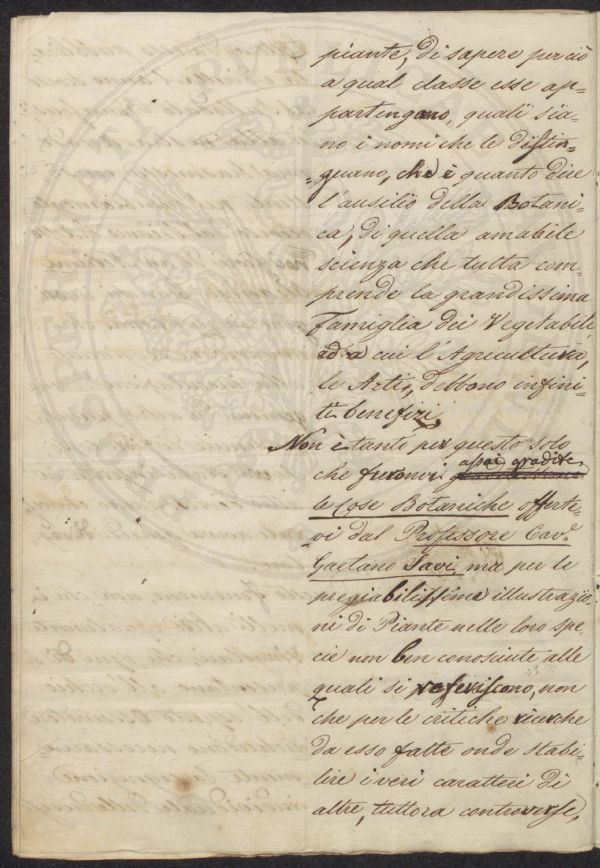 piante, di sapere perciò
a qual classe esse ap=
partengano, quali sia=
no i nomi che le distin=
=guano, che è quanto dire
l'ausilio della Botani=
ca, di quella amabile
scienza che tutta com=
prende la grandissima
Famiglia dei Vegetabili,
ed a cui l'Agricultura,
le Arti, debbono infini=
ti benefizi.
Non è tanto per questo solo
assai gradite
che furonvi
le Cose Botaniche offerte=
vi dal Professore Cav.e
Gaetano Savi, ma per le
pregiabilissime illustrazio=
ni di Piante nelle loro spe=
cie non ben conosciute alle
quali si referiscono, non
che per le critiche ricerche
da esso fatte onde stabi=
lire i veri caratteri di
altre, tuttora controverse,